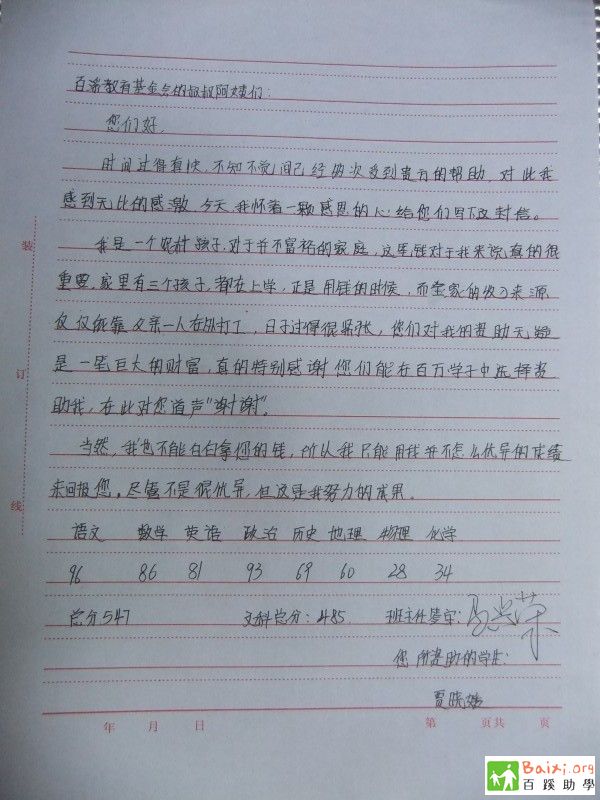 百端教育基金会的叔叔阿姨们:
您们好。
时间过得真快,不知不觉间已经两次受到贵方的帮助,对此我
感到无比的感激。今天,我怀着一颗感恩的心给您们写下这封信。
我是一个农村孩子,对于并不富裕的家庭,这笔钱对于我来说真的很
重要。家里有三个孩子,都在上学,正是用钱的时候,而全家的收入来源
仅仅依靠父亲一人在外打工,日子过得很紧张,您们对我的资助无疑
是一笔巨大的财富,真的特别感谢您们能在百万学子中选择资
助我,在此对您道声“谢谢”。
当然,我也不能白白拿您的钱,所以我只能用我并不怎么优异的成绩
来回报您。尽管不是很优异,但这是我努力的成果。
语文 数学 英语 政治 历史 地理 物理 化学
96 86 81 93 69 60 28 34
总分547 文科总分:485 班主任签字:
您所资助的学生:
贾晓
年 月 日 第 页共 页
装
订
线
Baixi.org
百蹊助學